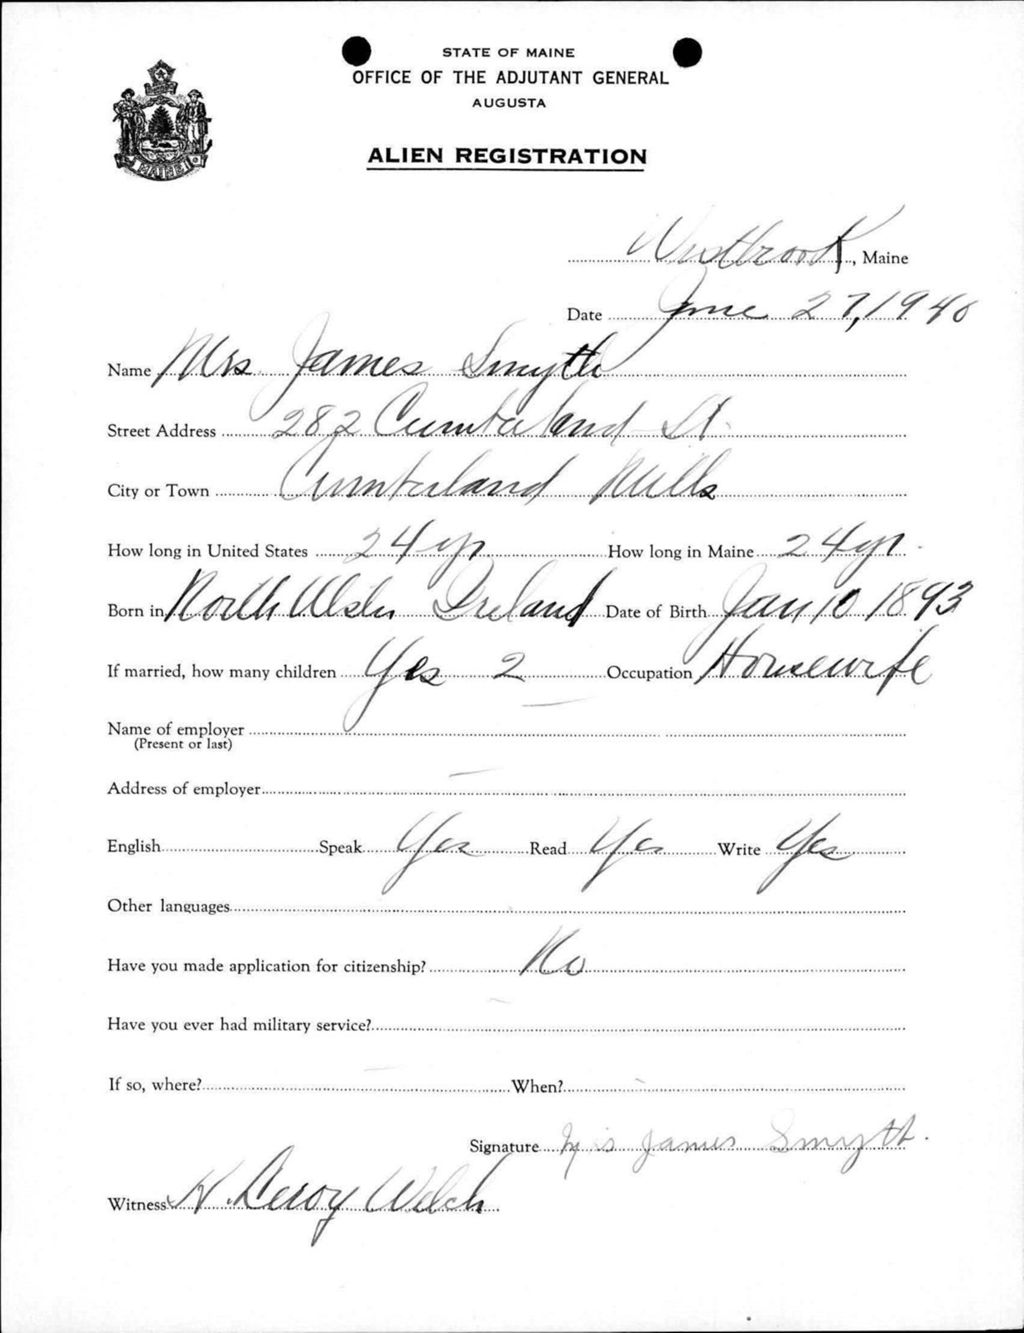 STATE OF MAINE
OFFICE OF THE ADJUTANT GENERAL
AUGUSTA
ALIEN REGISTRATION
MAINE
Westbrook, Maine
Date June 27, 1940
Name Mrs James Smyth
Street Address 282 Cumberland St.
City or Town Cumberland Mills
How long in United States 24 yr How long in Maine 24 yr.
Born in North Ulster Ireland Date of Birth Jan 10 1893
If married, how many children Yes 2 Occupation Housewife
Name of employer —
(Present or last)
Address of employer —
English Speak Yes Read Yes Write Yes
Other languages
Have you made application for citizenship? No
Have you ever had military service? -
If so, where? - When? -
Signature Mrs James Smyth.
Witness H. Leroy Welch